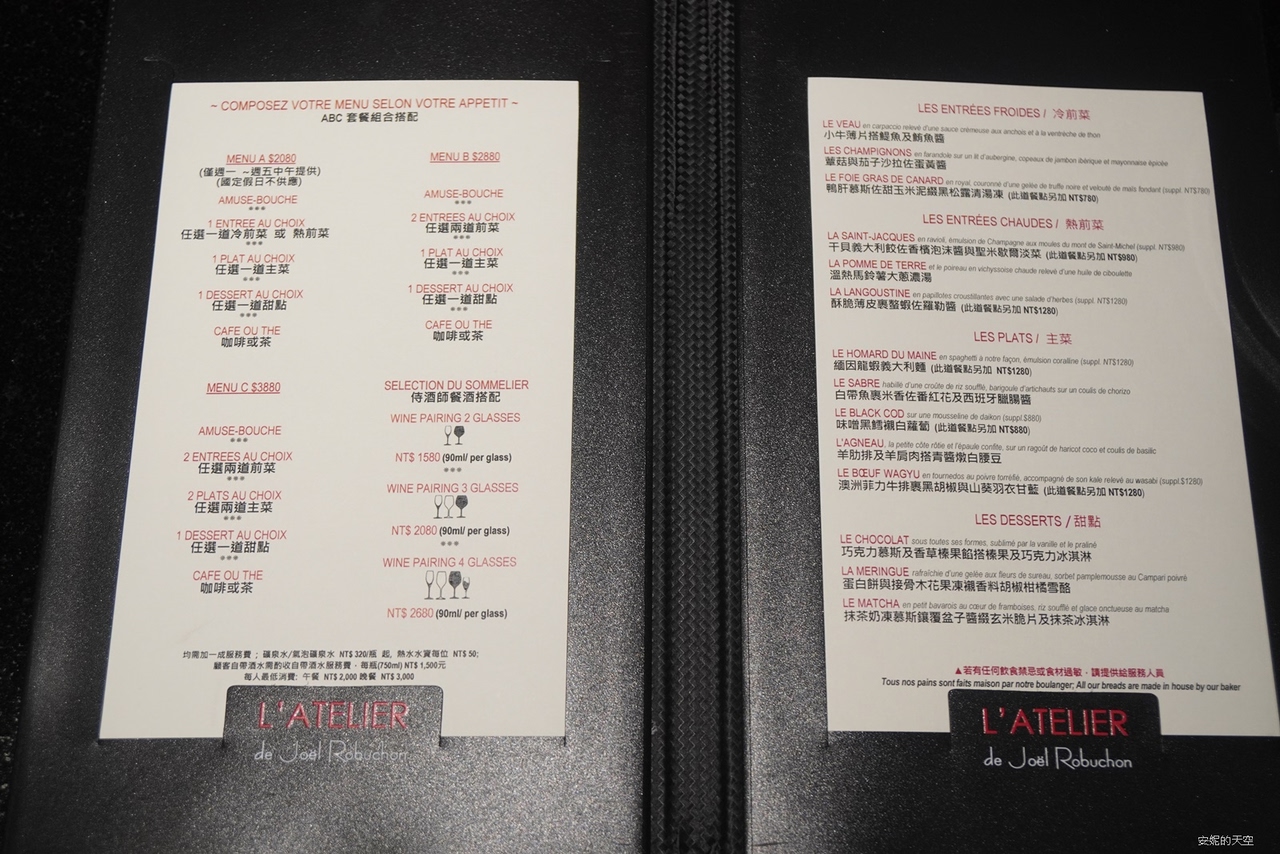 ~ COMPOSEZ VOTRE MENU SELON VOTRE APPETIT ~
ABC 套餐組合搭配
MENU A $2080
(僅週一 ~週五中午提供)
(國定假日不供應)
AMUSE-BOUCHE
***
1 ENTREE AU CHOIX
任選一道冷前菜 或 熱前菜
***
1 PLAT AU CHOIX
任選一道主菜
***
1 DESSERT AU CHOIX
任選一道甜點
***
CAFE OU THE
咖啡或茶
MENU B $2880
AMUSE-BOUCHE
***
2 ENTREES AU CHOIX
任選兩道前菜
***
1 PLAT AU CHOIX
任選一道主菜
***
1 DESSERT AU CHOIX
任選一道甜點
***
CAFE OU THE
咖啡或茶
MENU C $3880
AMUSE-BOUCHE
***
2 ENTREES AU CHOIX
任選兩道前菜
***
2 PLATS AU CHOIX
任選兩道主菜
***
1 DESSERT AU CHOIX
任選一道甜點
***
CAFE OU THE
咖啡或茶
SELECTION DU SOMMELIER
侍酒師餐酒搭配
WINE PAIRING 2 GLASSES
NT$ 1580 (90ml/ per glass)
***
WINE PAIRING 3 GLASSES
NT$ 2080 (90ml/ per glass)
***
WINE PAIRING 4 GLASSES
NT$ 2680 (90ml/ per glass)
均需加一成服務費；礦泉水/氣泡礦泉水 NT$ 320/瓶 起, 熱水水資每位 NT$ 50;
顧客自帶酒水需酌收自帶酒水服務費，每瓶(750ml) NT$ 1,500元
每人最低消費: 午餐 NT$ 2,000 晚餐 NT$ 3,000
L'ATELIER
de Joël Robuchon
LES ENTRÉES FROIDES / 冷前菜
LE VEAU en carpaccio relevé d'une sauce crémeuse aux anchois et à la ventrèche de thon
小牛薄片搭鯷魚及鮪魚醬
LES CHAMPIGNONS en farandole sur un lit d'aubergine, copeaux de jambon ibérique et mayonnaise épicée
蕈菇與茄子沙拉佐蛋黃醬
LE FOIE GRAS DE CANARD en royal, couronné d'une gelée de truffe noire et velouté de maïs fondant (suppl. NT$780)
鴨肝慕斯佐甜玉米泥綴黑松露清湯凍 (此道餐點另加 NT$780)
LES ENTRÉES CHAUDES / 熱前菜
LA SAINT-JACQUES en ravioli, émulsion de Champagne aux moules du mont de Saint-Michel (suppl. NT$980)
干貝義大利餃佐香檳泡沫醬與聖米歇爾淡菜 (此道餐點另加 NT$980)
LA POMME DE TERRE et le poireau en vichyssoise chaude relevé d'une huile de ciboulette
溫熱馬鈴薯大蔥濃湯
LA LANGOUSTINE en papillotes croustillantes avec une salade d'herbes (suppl. NT$1280)
酥脆薄皮裹螯蝦佐羅勒醬 (此道餐點另加 NT$1280)
LES PLATS / 主菜
LE HOMARD DU MAINE en spaghetti à notre façon, émulsion coralline (suppl. NT$1280)
緬因龍蝦義大利麵 (此道餐點另加 NT$1280)
LE SABRE habillé d'une croûte de riz soufflé, barigoule d'artichauts sur un coulis de chorizo
白帶魚裹米香佐番紅花及西班牙臘腸醬
LE BLACK COD sur une mousseline de daikon (suppl.$880)
味噌黑鱈襯白蘿蔔 (此道餐點另加 NT$880)
L'AGNEAU, la petite côte rôtie et l'épaule confite, sur un ragoût de haricot coco et coulis de basilic
羊肋排及羊肩肉搭青醬燉白腰豆
LE BŒUF WAGYU en tournedos au poivre torréfié, accompagné de son kale relevé au wasabi (suppl.$1280)
澳洲菲力牛排裹黑胡椒與山葵羽衣甘藍 (此道餐點另加 NT$1280)
LES DESSERTS / 甜點
LE CHOCOLAT sous toutes ses formes, sublimé par la vanille et le praliné
巧克力慕斯及香草榛果餡搭榛果及巧克力冰淇淋
LA MERINGUE rafraîchie d'une gelée aux fleurs de sureau, sorbet pamplemousse au Campari poivré
蛋白餅與接骨木花果凍襯香料胡椒柑橘雪酪
LE MATCHA en petit bavarois au cœur de framboises, riz soufflé et glace onctueuse au matcha
抹茶奶凍慕斯鑲覆盆子醬綴玄米脆片及抹茶冰淇淋
▲若有任何飲食禁忌或食材過敏，請提供給服務人員
Tous nos pains sont faits maison par notre boulanger; All our breads are made in house by our baker
L'ATELIER
de Joël Robuchon
安妮的天空